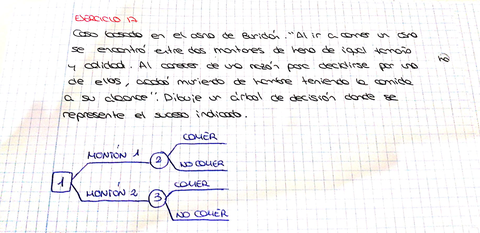 EJERCICIO 17
Caso basado en el asno de Buridán. "Al ir a comer un asno
se encontró entre dos montones de heno de igual tamaño
y calidad. Al carecer de una razón para decidirse por uno
de ellos, acabó muriendo de hambre teniendo la comida
a su alcance". Dibuje un árbol de decisión donde se
represente el suceso indicado.
no
COMER
MONTÓN 1
2
NO COMER
1
COMER
MONTÓN 2
3
NO COMER